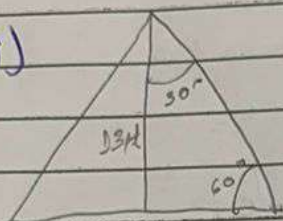 )
30°
13M
60°